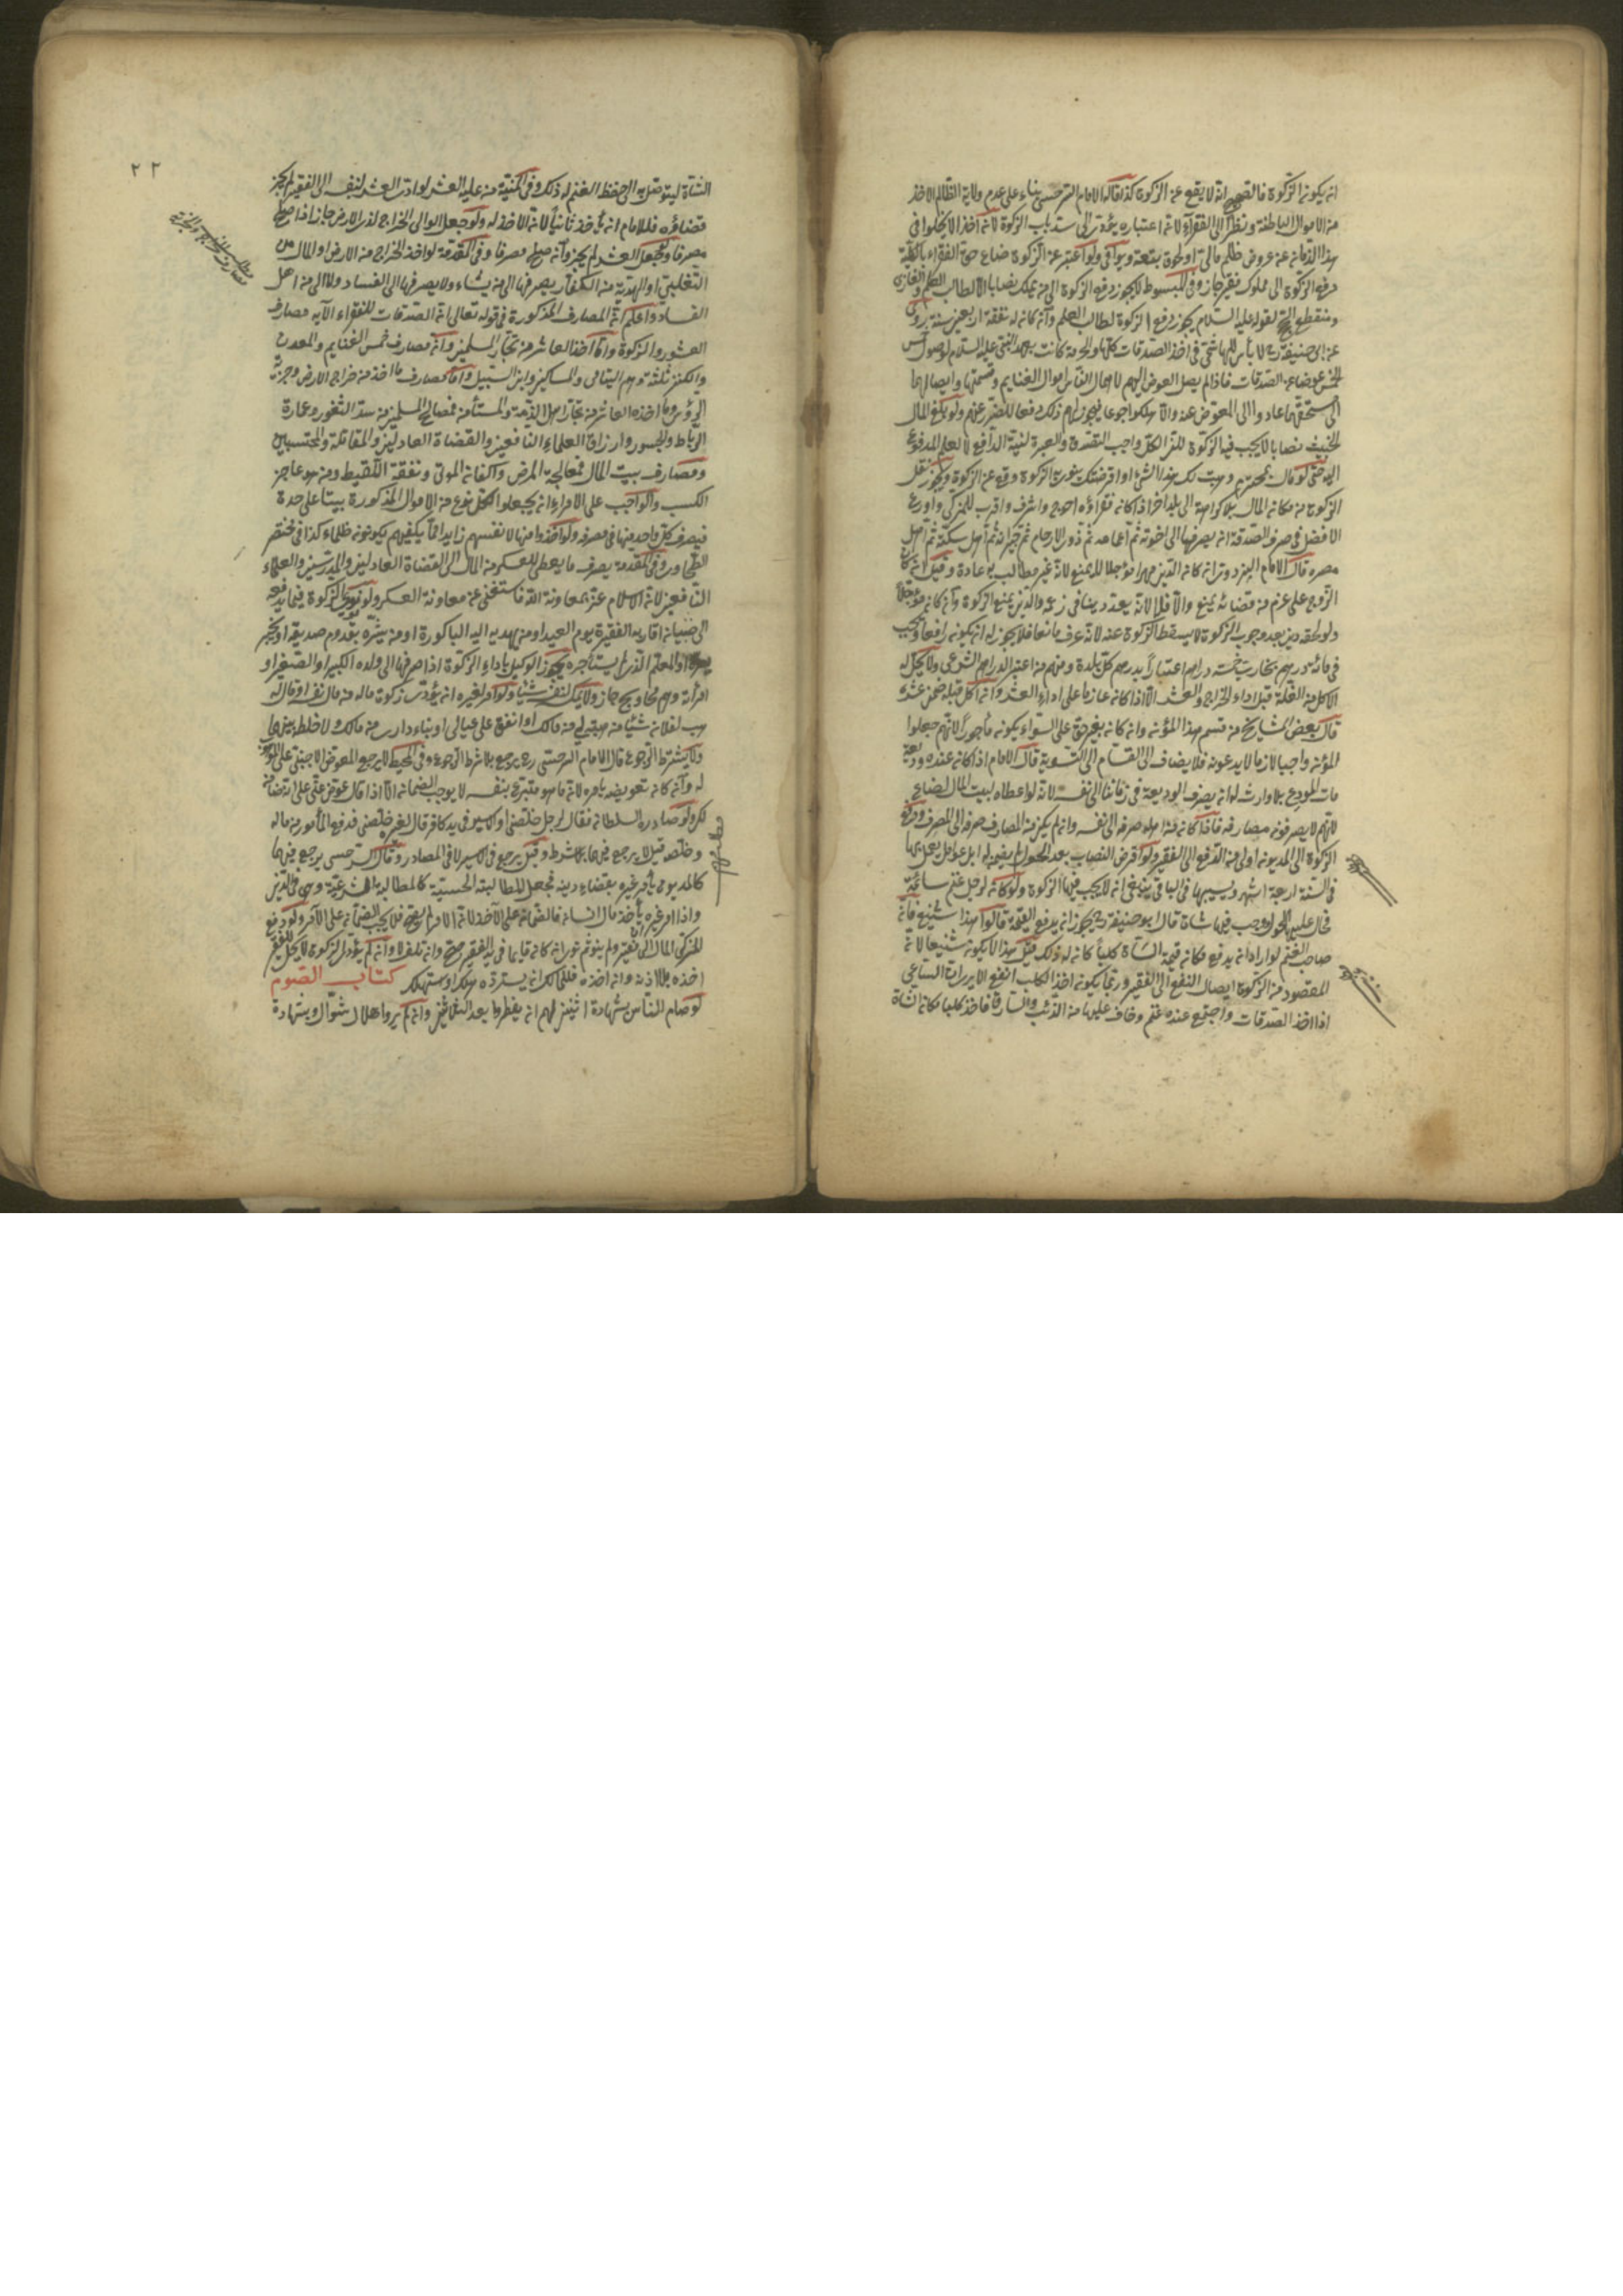 انه يكونه الزكوة فالصحيح انه لا يقع عن الزكوة كذا قاله الامام السرخسي بناء على عدم ولاية الظالم الاخذ
من الاموال الباطنة ونظرا الى الفقراء لانه اعتباره يؤدي الى سد باب الزكوة لانه اخذ الا يخلو في
هذا الزمانه عن عروض ظلم مالي ولو اعتبر عن الزكوة ضاع حق الفقراء بالكلية
دفع الزكوة الى مملوك فقير جاز وفي المبسوط لا يجوز دفع الزكوة الى من يملك نصابا الا لطالب العلم والغازي
ومنقطع لقوله عليه السلام يجوز دفع الزكوة لطالب العلم وانه كانه له نفقة اربعين سنة روى
عن ابي حنيفة رح لا بأس للهاشمي في اخذ الصدقات كلها والحرمة كانت بعهد النبي عليه السلام لوصول خمس
الخمس عوضا عن الصدقات فاذا لم يصل العوض اليهم لاهمال الناس اموال الغنايم وقسمتها وايصالها
الى مستحقها عاد وا الى المعوض عنه والا هلكوا جوعا فيجوز لهم ذلك دفعا للضرر عنهم ولو بلغ المال
الخبيث نصابا لا يجب فيه الزكوة للزكي الكل واجب التصدق والعبرة لنية الدافع لا لعلم المدفوع
اليه حتى لو قال وهبت لك هذا الشئ او اقرضتك ينوي الزكوة وقع عن الزكوة ويجوز نقل
الزكوة من مكانه المال بلا كراهة الى بلد اخر اذا كانه فقراؤه احوج واشرف واقرب للمزكي واورع
الافضل في صرف الصدقة انه يصرفها الى اخوته ثم اعمامه ثم ذوي الارحام ثم جيرانه ثم اهل سكنه ثم اهل
مصره قال الامام البزدوي انه كانه الدين مهرا مؤجلا لا يمنع لانه غير مطالب به عادة وقيل انه كان
الزوج على عزم من قضائه يمنع والا فلا لانه يعد دينا في زعمه والدين يمنع الزكوة وانه كانه مؤجلا
ولو لحقه دين بعد وجوب الزكوة لا يسقط الزكوة عنه لانه عرف مانعا فلا يجوز له انه يكونه رافعا ويجب
في مائتي درهم بخارية خمسة دراهم اعتبارا بدرهم كل بلدة ومنهم من اعتبر الدراهم الشرعي ولا يحل له
الاكل من الغلة قبل اداء الخراج والعشر الا اذا كانه عازما على اداء العشر وانه اكل قبله ضمن عشره
قال بعض المشايخ من قسم هذا المؤنة وانه كانه بغير حق على السواء يكونه مأجورا لانهم جعلوا
المؤنة واجبا لازما لا يدعونه فلا يضاف الى القسام الى التسوية قال الامام اذا كانه عنده وديعة
مات المودع بلا وارث له انه يصرف الوديعة في زماننا الى نفسه لانه لو اعطاه لبيت المال لضاع
لانهم لا يصرفونه مصارفه فاذا كانه من اهله صرفه الى نفسه وانه لم يكن من المصارف صرفه الى المصرف ودفع
الزكوة الى المديونه اولى من الدفع الى الفقير ولو اقرض النصاب بعد الحول له ابل عوامل يعمل بها
في السنة اربعة اشهر ويسيبها في الباقي ينبغي انه لا يجب فيها الزكوة ولو كانه لرجل غنم سائمة
فحال عليها الحول ووجب فيها شاة قال ابو حنيفة رح يجوز انه يدفع القيمة قالوا هذا شنيع فانه
صاحب الغنم لو اراد انه يدفع مكانه قيمة الشاة كلبا كانه له ذلك قيل هذا لا يكونه شنيعا لانه
المقصود من الزكوة ايصال النفع الى الفقير وربما يكونه اخذ الكلب انفع الا يرى انه الساعي
اذا اخذ الصدقات واجتمع عنده غنم وخاف عليها من الذئب والسارق فاخذ كلبا مكانه الشاة
٢٢
الشاة ليتوصل به الى حفظ الغنم له ذلك وفي المنية من عليه العشر لو ادى العشر بنفسه الى الفقير لم يجز
قضاؤه فللامام انه يأخذ ثانيا لانه الاخذ له ولو جعل الوالي الخراج لذي الارض جاز اذا صلح
مصرفا ولو جعل العشر لم يجز وانه صلح مصرفا وفي المقدمة لو اخذ الخراج من الارض او المال من
التغلبي او الهدية من الكفار يصرفها الى من يشاء ولا يصرفها الى الفساد ولا الى من اهل
الفساد واعلم انه المصارف المذكورة في قوله تعالى انما الصدقات للفقراء الآية مصارف
العشور والزكوة وانما اخذ العاشر من تجار المسلمين وانه مصارف خمس الغنايم والمعدن
والكنز ثلثة وهم اليتامى والمساكين وابن السبيل واما مصارف ما اخذ من خراج الارض وجزية
الرؤس وما اخذه العاشر من تجار اهل الذمة والمستأمن فمصالح المسلمين من سد الثغور وعمارة
الرباط والجسور وارزاق العلماء النافعين والقضاة العادلين والمقاتلة والمحتسبين
ومصارف بيت المال فمعالجة المرضى واكفانه الموتى ونفقة اللقيط ومن هو عاجز
الكسب والواجب على الامراء انه يجعلوا لكل نوع من الاموال المذكورة بيتا على حدة
فيصرف كل واحد منها في مصرفه ولو اخذوا منها لانفسهم زايدا عما يكفيهم يكونونه ظلماء كذا في مختصر
الطحاوي وفي المقدمة يصرف ما يعطى للعسكر من المال الى القضاة العادلين والمدرسين والعلماء
النافعين لانه الاسلام عز بمعاونة الله فاستغنى عن معاونة العسكر ولو نوى الزكوة فيما يدفعه
الى صبيانه اقاربه الفقيرة يوم العيد او من يهديه اليه الباكورة او من يبشره بقدوم صديقه او يخبر
او المعلم الذي يستأجره يجوز الوكيل باداء الزكوة اذا صرفها الى ولده الكبير او الصغير او
امرأته وهم محاويج جاز ولا يمسك لنفسه شيئا ولو امر لغيره انه يؤدي زكوة ماله من مال نفسه او قال له
هب لفلانه شيئا من هبته لي من مالك او انفق على عيالي او بناء داري من مالك ولا خلط بينهما
ولا يشترط الرجوع قال الامام السرخسي رح يرجع بلا شرط الرجوع وفي المحيط لا يرجع المعوض الاجنبي على الموهوب
له وانه كانه تعويضه بامره لانه ما هو متبرع بنفسه لا يوجب الضمانه الا اذا قال عوض عني على انه ضامن
ولو صادره السلطانه فقال لرجل خلصني او الاسير في يد كافر قال لغيره خلصني فدفع المأمور من ماله
وخلصه قيل لا يرجع فيهما بلا شرط وقيل يرجع في الاسير لا في المصادر وقال السرخسي يرجع فيهما
كالمديون يأمر غيره بقضاء دينه فجعل للمطالبة الحسية كالمطالبة الشرعية وهي في الدين
واذا امر غيره بأخذ مال انسانه فالضمانه على الآخذ لانه الامر لم يصح فلا يجب الضمانه على الآمر ولو دفع
للمزكي المال الى فقير ولم ينو ثم نوى انه كانه قايما في يد الفقير صح وانه تلف لا وانه لم يؤد الزكوة لا يحل للفقير
اخذه بلا اذنه وانه اخذه فللمالك انه يسترده هلك او استهلك كتاب الصوم
لو صام الناس بشهادة اثنين لهم انه يفطروا بعد الثلاثين وانه لم يروا هلال شوال وبشهادة